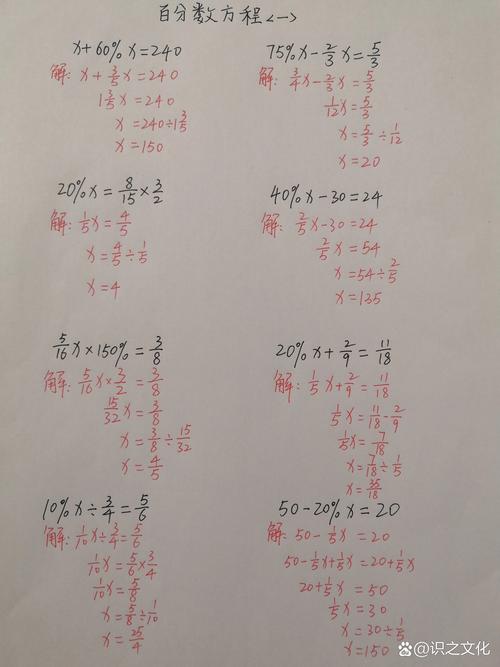 百分数方程<一>
x+60%x=240
解: x+3/5x=240
1 3/5x=240
x=240÷1 3/5
x=150
75%x-2/3x=5/3
解: 3/4x-2/3x=5/3
1/12x=5/3
x=5/3÷1/12
x=20
20%x=8/15×3/2
解: 1/5x=4/5
x=4/5÷1/5
x=4
40%x-30=24
解: 2/5x-30=24
2/5x=54
x=54÷2/5
x=135
5/16x×150%=3/8
解: 5/16x×3/2=3/8
15/32x=3/8
x=3/8÷15/32
x=4/5
20%x+2/9=11/18
解: 1/5x+2/9=11/18
1/5x=11/18-2/9
1/5x=7/18
x=7/18÷1/5
x=35/18
10%x÷3/4=5/6
解: 1/10x÷3/4=5/6
1/10x=5/6×3/4
1/10x=5/8
x=5/8÷1/10
x=25/4
50-20%x=20
解: 50-1/5x=20
50-1/5x+1/5x=20+1/5x
20+1/5x=50
1/5x=30
x=30÷1/5
x=150
识之文化